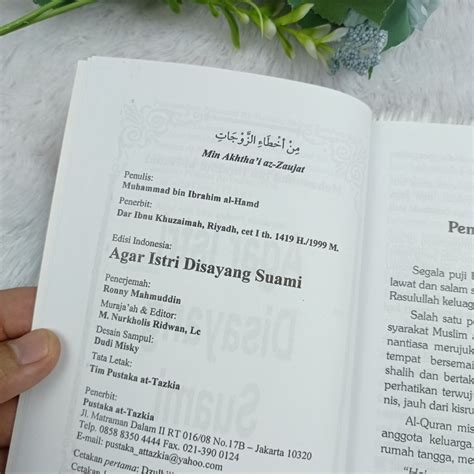 مِنْ أَخْطَاءِ الزَّوْجَاتِ
Min Akhtha'i az-Zaujat
Penulis:
Muhammad bin Ibrahim al-Hamd
Penerbit:
Dar Ibnu Khuzaimah, Riyadh, cet I th. 1419 H./1999 M.
Edisi Indonesia:
Agar Istri Disayang Suami
Penerjemah:
Ronny Mahmuddin
Muraja'ah & Editor:
M. Nurkholis Ridwan, Lc
Desain Sampul:
Dudi Misky
Tata Letak:
Tim Pustaka at-Tazkia
Penerbit:
Pustaka at-Tazkia
Jl. Matraman Dalam II RT 016/08 No.17B – Jakarta 10320
Telp. 0858 8350 4444 Fax. 021-390 0124
E-mail: pustaka_attazkia@yahoo.com
Cetakan pertama:
Cetakan
Pen
Segala puji
lawat dan salam s
Rasulullah keluarg
Salah satu p
syarakat Muslim
nantiasa merujuk
tempat bersemai
shalih dan bertak
perhatikan terwuj
nis, jauh dari kisru
Al-Quran mis
anggota keluarga
rumah tangga, me